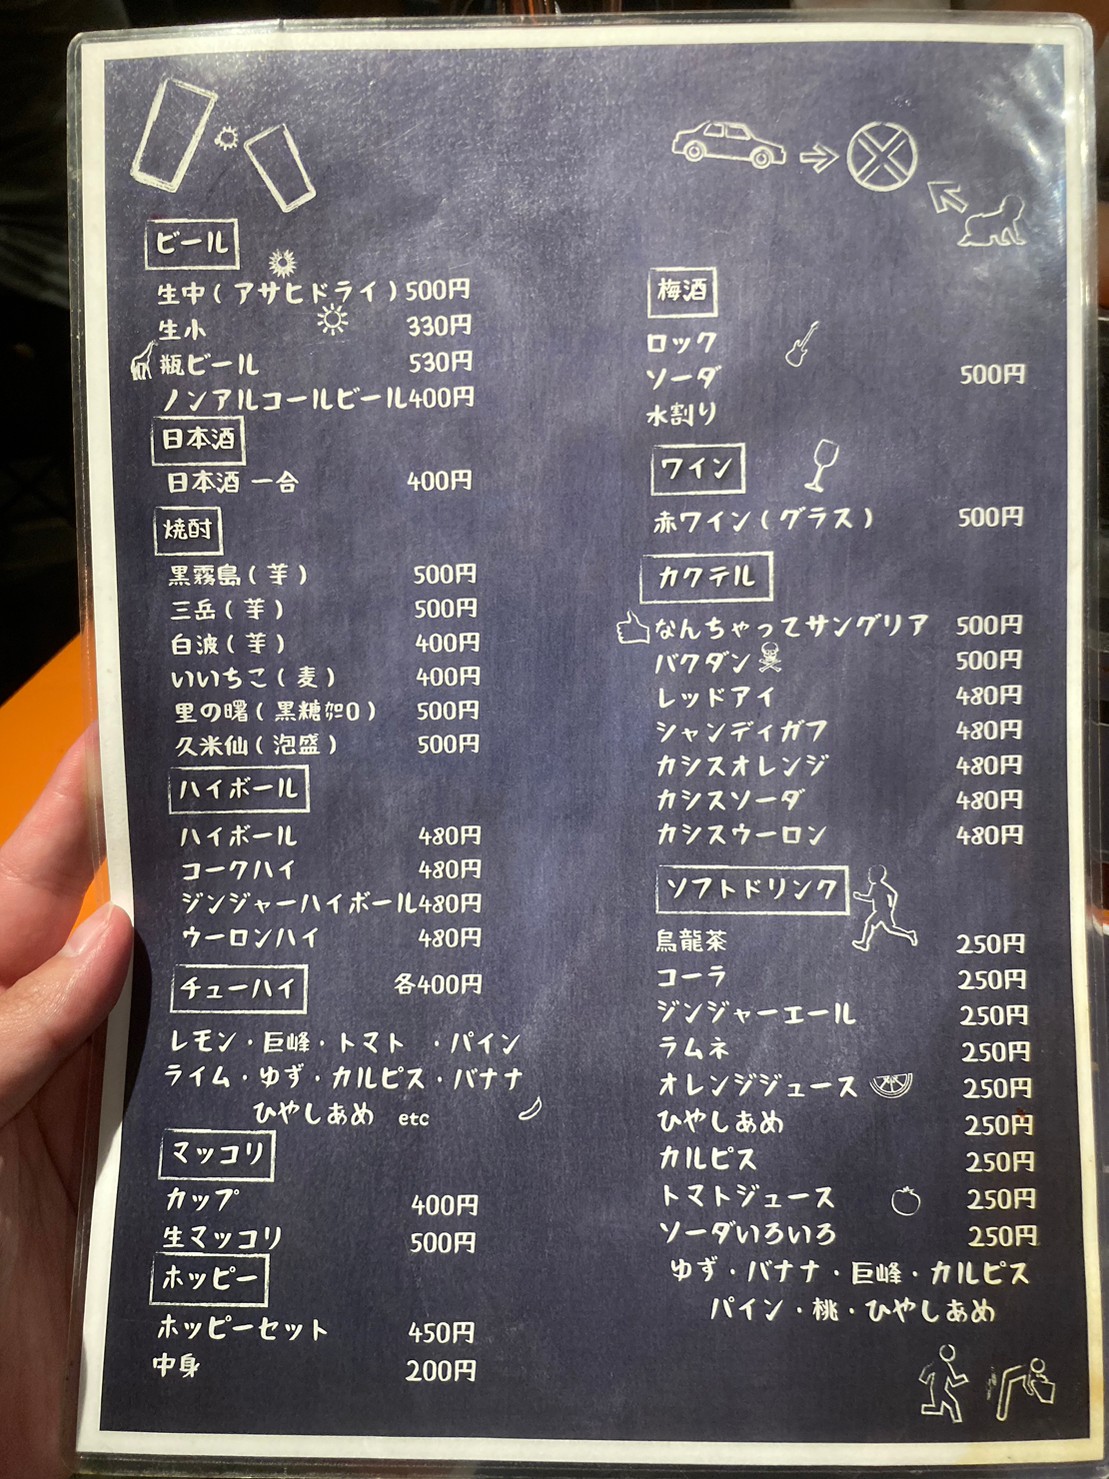 ビール
生中(アサヒドライ)500円
生小 330円
瓶ビール 530円
ノンアルコールビール400円
日本酒
日本酒 一合 400円
焼酎
黒霧島(芋) 500円
三岳(芋) 500円
白波(芋) 400円
いいちこ(麦) 400円
里の曙(黒糖 500円
久米仙(泡盛) 500円
ハイボール
ハイボール 480円
コークハイ 480円
ジンジャーハイボール480円
ウーロンハイ 480円
チューハイ 各400円
レモン・巨峰・トマト ・パイン
ライム・ゆず・カルピス・バナナ
ひやしあめ etc
マッコリ
カップ 400円
生マッコリ 500円
ホッピー
ホッピーセット 450円
中身 200円
梅酒
ロック
ソーダ 500円
水割り
ワイン
赤ワイン(グラス) 500円
カクテル
なんちゃってサングリア 500円
バクダン 500円
レッドアイ 480円
シャンディガフ 480円
カシスオレンジ 480円
カシスソーダ 480円
カシスウーロン 480円
ソフトドリンク
烏龍茶 250円
コーラ 250円
ジンジャーエール 250円
ラムネ 250円
オレンジジュース 250円
ひやしあめ 250円
カルピス 250円
トマトジュース 250円
ソーダいろいろ 250円
ゆず・バナナ・巨峰・カルピス
パイン・桃・ひやしあめ